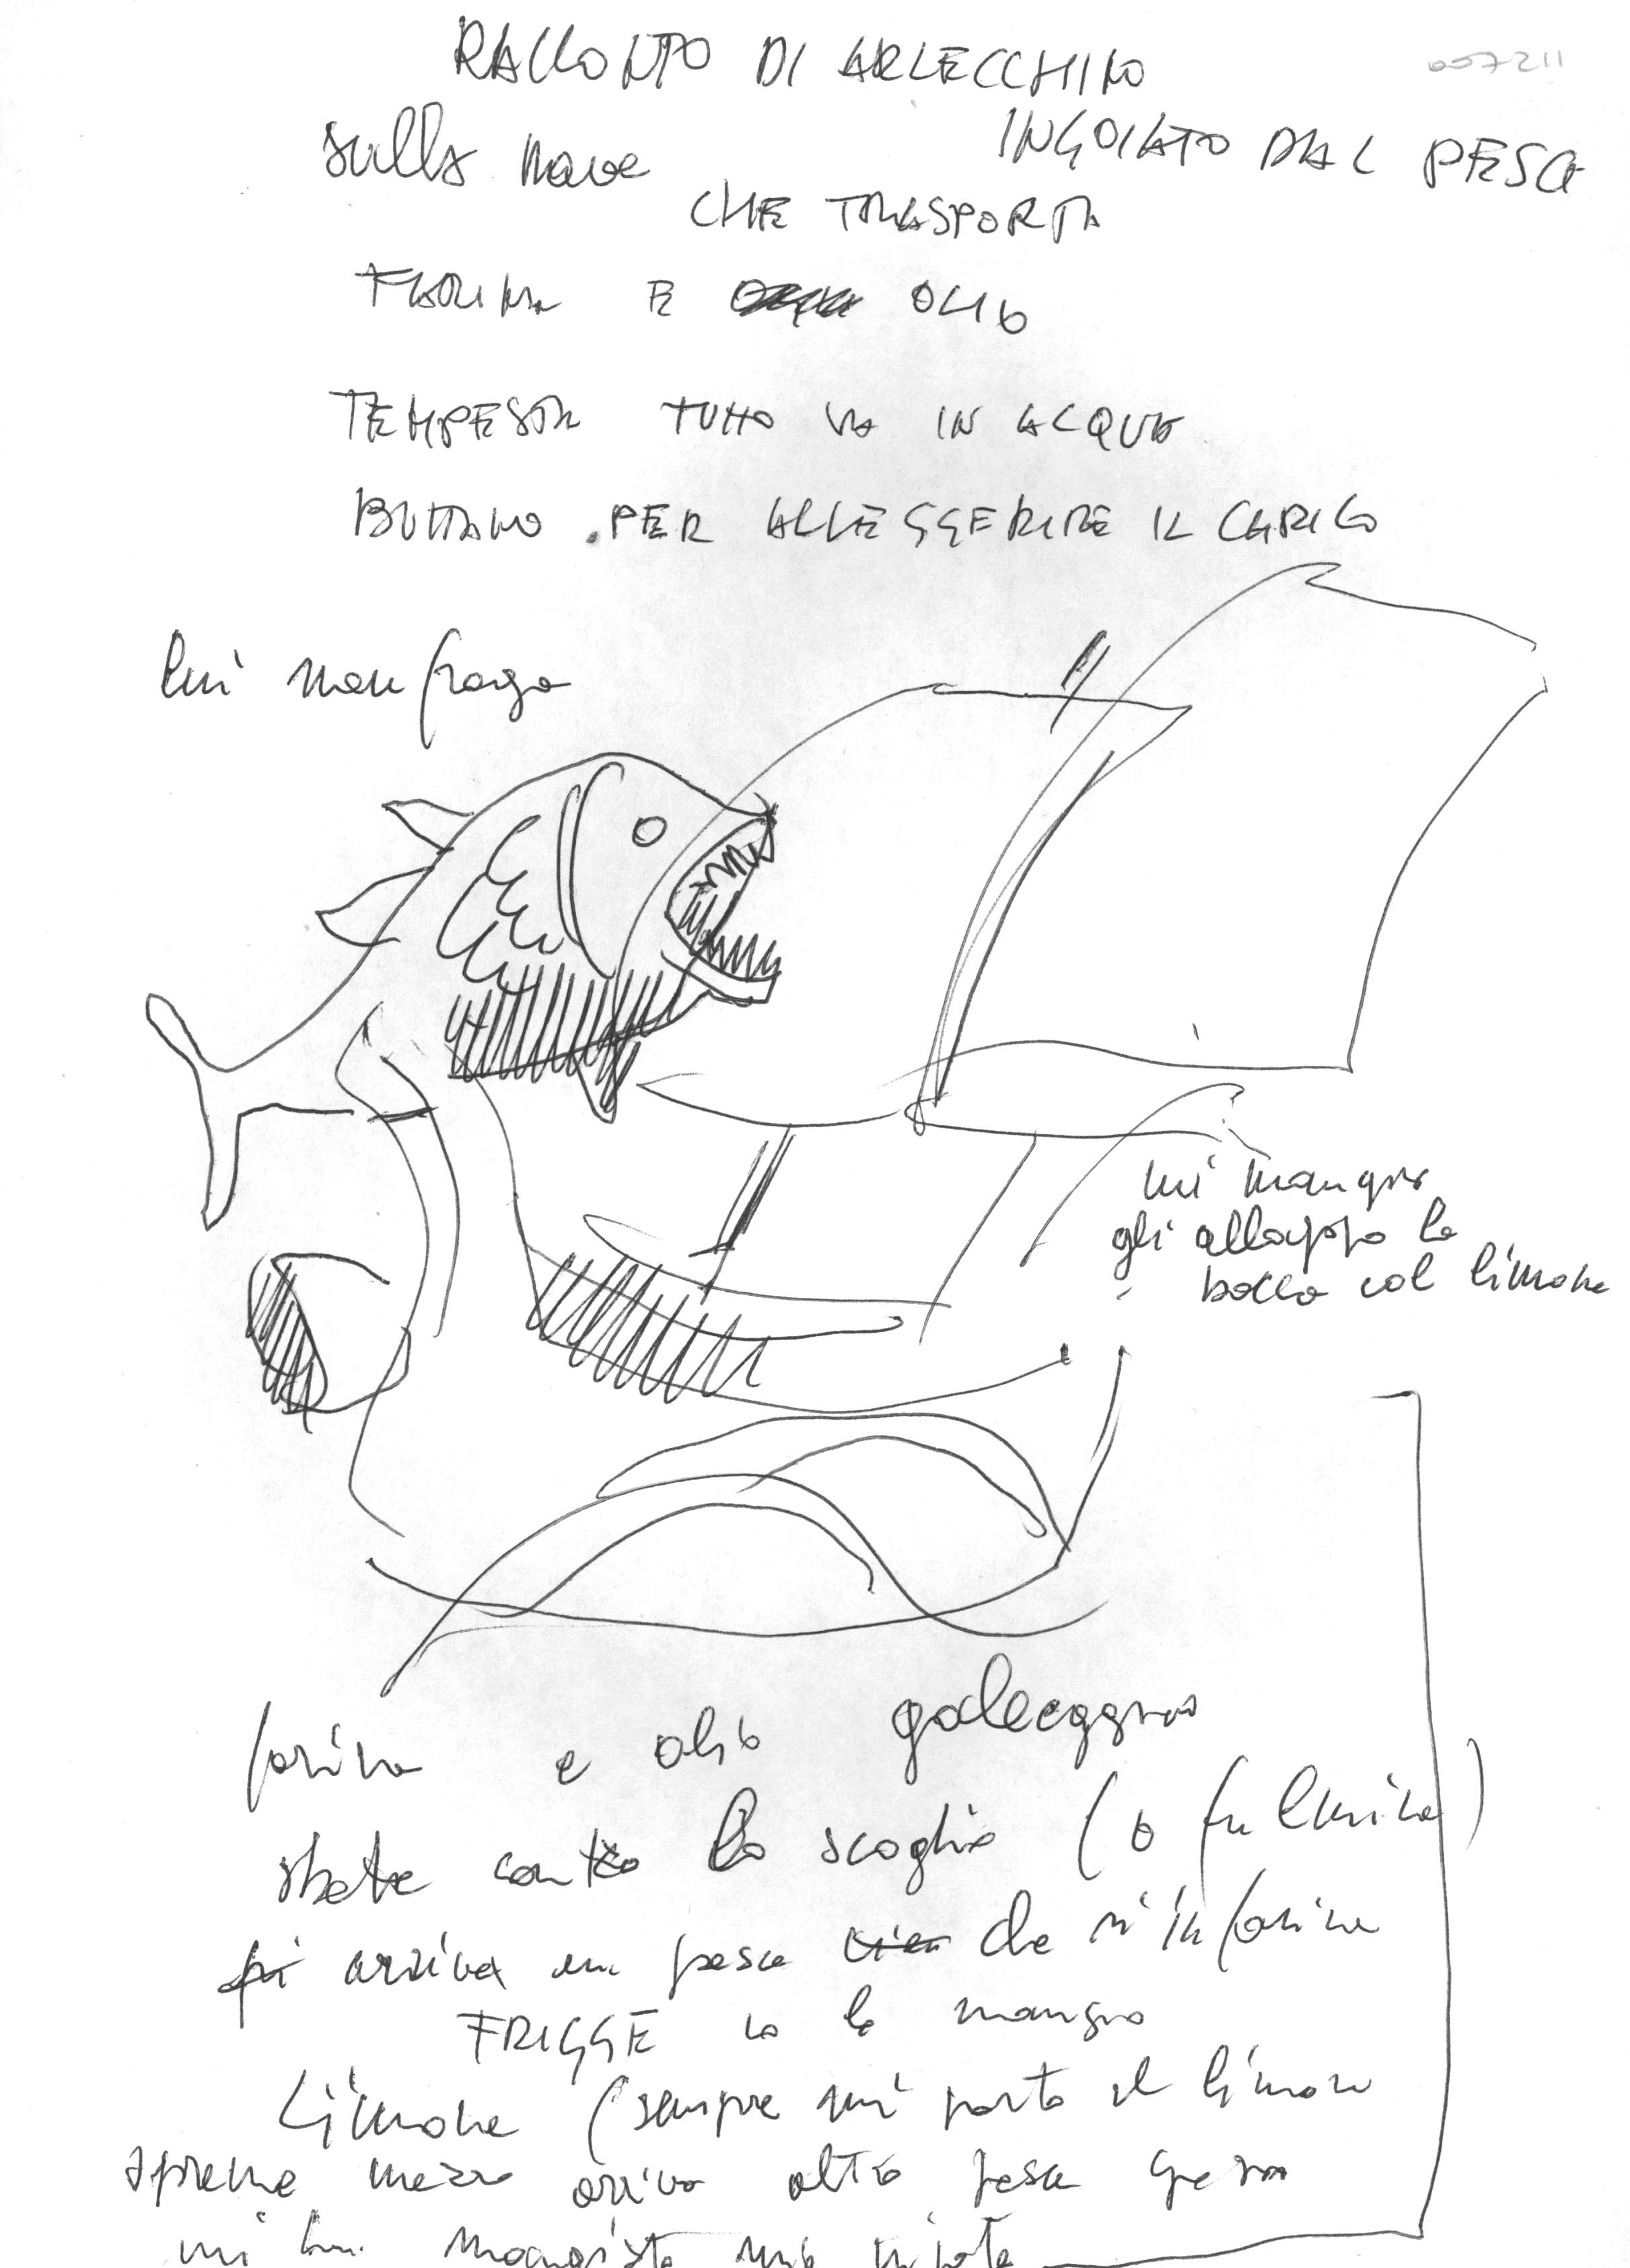 RACCONTO DI ARLECCHINO
007211
INGOIATO DAL PESCE
sulla nave
CHE TRASPORTA
FARINA E OLIO
TEMPESTA TUTTO VA IN ACQUA
BUTTANO PER ALLEGGERIRE IL CARICO
lui naufrago
mi mangia
gli allappo la
bocca col limone
farina e olio galleggiano
sbatte contro lo scoglio (o fulmine)
arriva un pesce che si infarina
FRIGGE io lo mangio
Limone (sempre mi porto il limone
spreme mezzo arriva altro pesce
mi ha mangiato